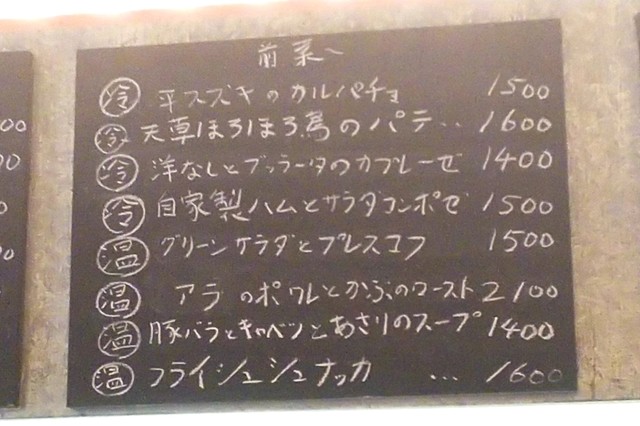 前菜〜
冷 平スズキのカルパチョ 1500
冷 天草ほろほろ鳥のパテ‥ 1600
冷 洋なしとブッラータのカプレーゼ 1400
冷 自家製ハムとサラダコンポゼ 1500
温 グリーンサラダとプレスコフ 1500
温 アラのポワレとかぶのロースト 2100
温 豚バラとキャベツとあさりのスープ 1400
温 フライシュシュナッカ … 1600